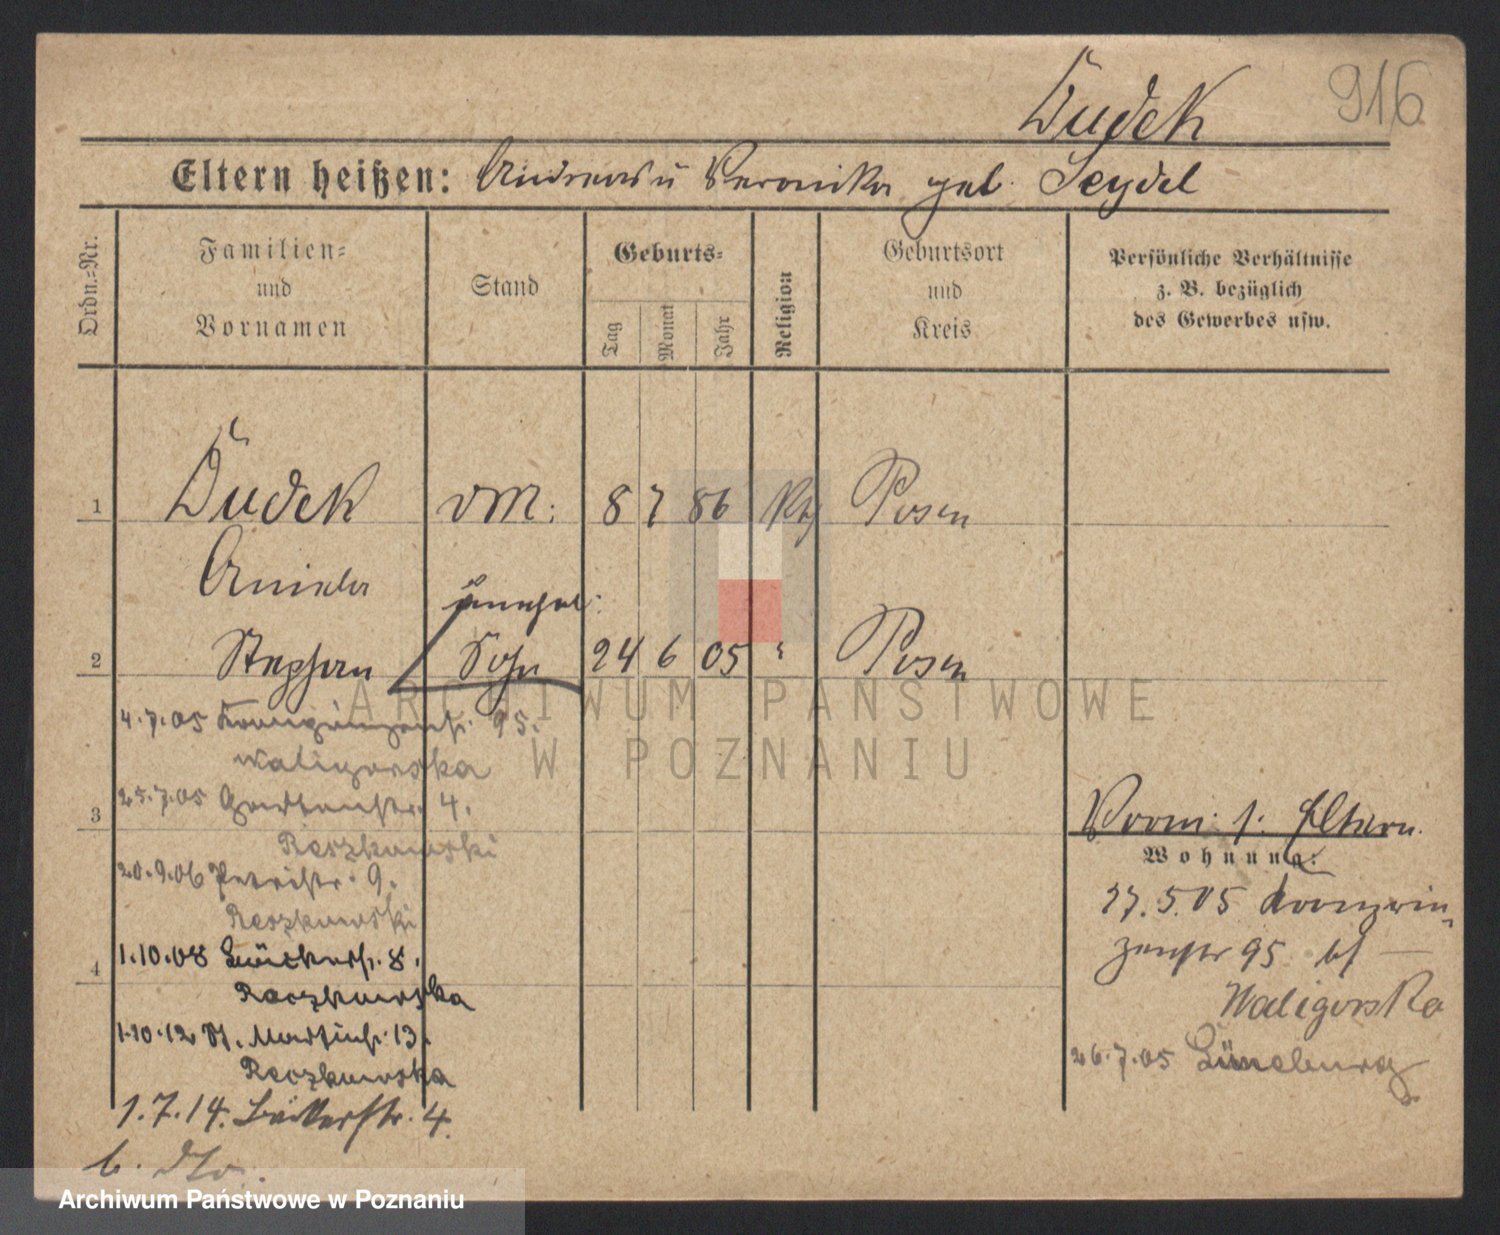 Dudek
916
Eltern heißen: Andreas u Veronika geb. Seydel
Ordn.=Nr.
Familien=
und
Vornamen
Stand
Geburts=
Tag
Monat
Jahr
Religion
Geburtsort
und
Kreis
Persönliche Verhältnisse
z. B. bezüglich
des Gewerbes usw.
1 Dudek 8 7 86 Posen
Aniela
unehel.
2 Stephan Sohn 24 6 05 " Posen
4.7.05 95.
Waligorska
25.7.05 Gartenstr. 4.
3 Reszkowski
20.9.06 Petristr. 9.
Reszkowski
1.10.08 Bäckerstr. 8.
4 Reszkowska
1.10.12 St. Martinstr. 13.
Reszkowska
1.7.14. Bäckerstr. 4.
b. dto.
Vorm. s. Eltern.
Wohnung:
27.5.05 Kronprin
zenstr 95 bei
Waligorska
26.7.05 Lüneburg
ARCHIWUM PAŃSTWOWE
W POZNANIU
Archiwum Państwowe w Poznaniu